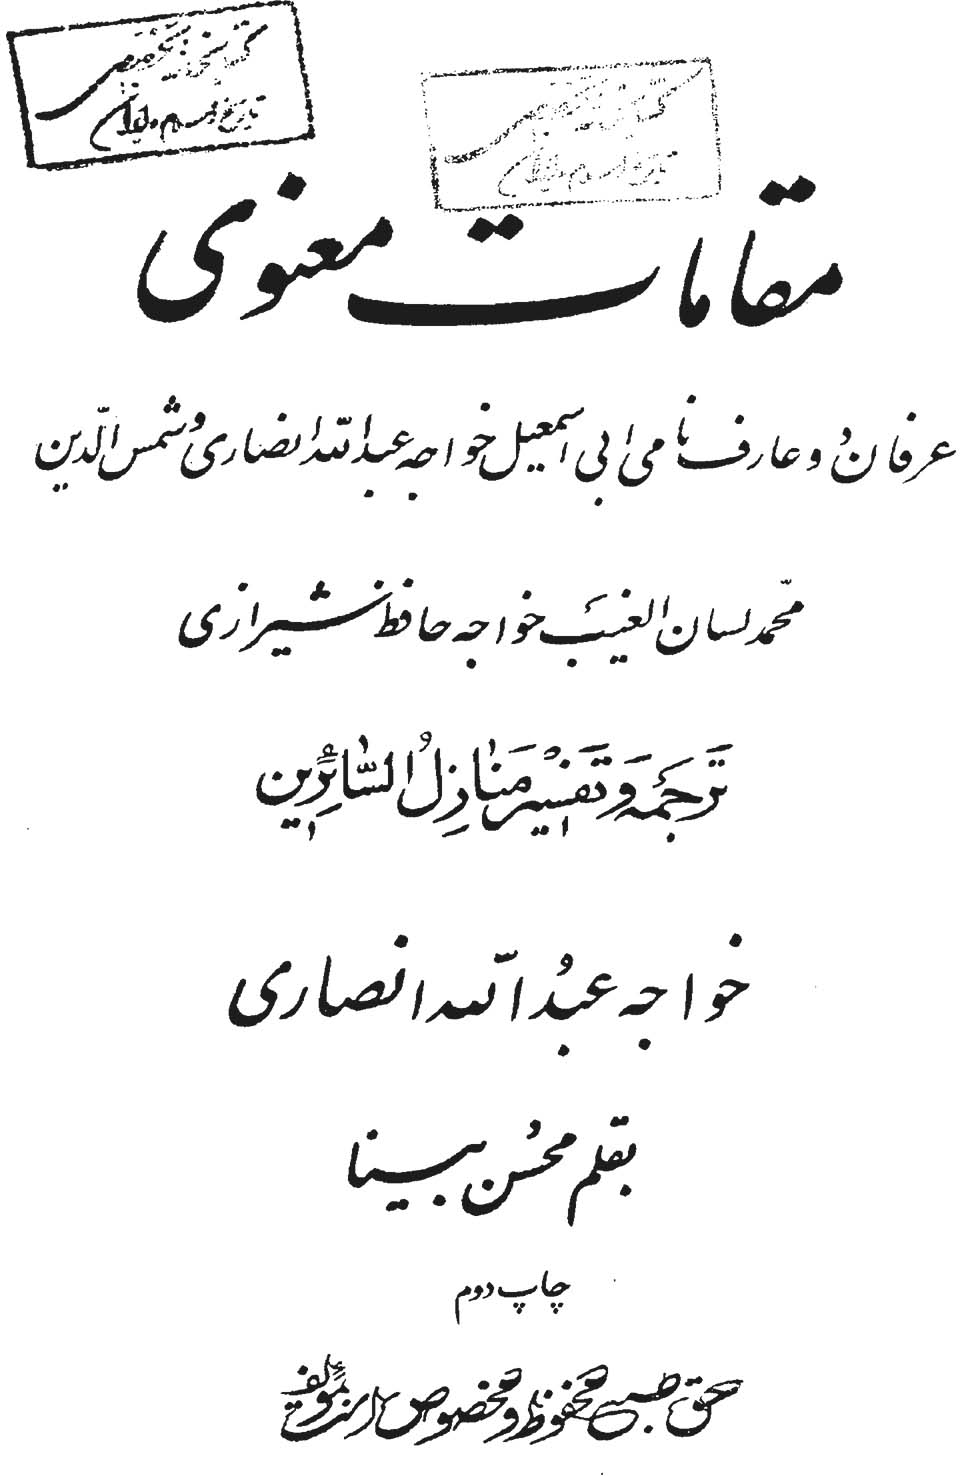 کتابخانه تخصصی
تاریخ اسلام و ایران
کتابخانه تخصصی
تاریخ اسلام و ایران
مقامات معنوی
عرفان دو عارف نامی ابی اسمعیل خواجه عبدالله انصاری و شمس الدین
محمد لسان الغیب خواجه حافظ شیرازی
تَرجَمَه وَ تَفسیر مَنازِلُ السّائِرین
خواجه عبدُالله انصاری
بقلم محسن بینا
چاپ دوم
حق طبع محفوظ و مخصوص است بمؤلف